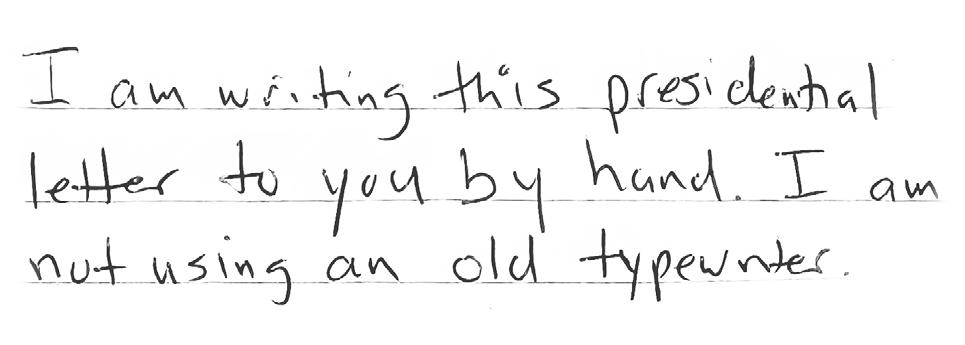 I am writing this presidential
letter to you by hand. I am
not using an old typewriter.